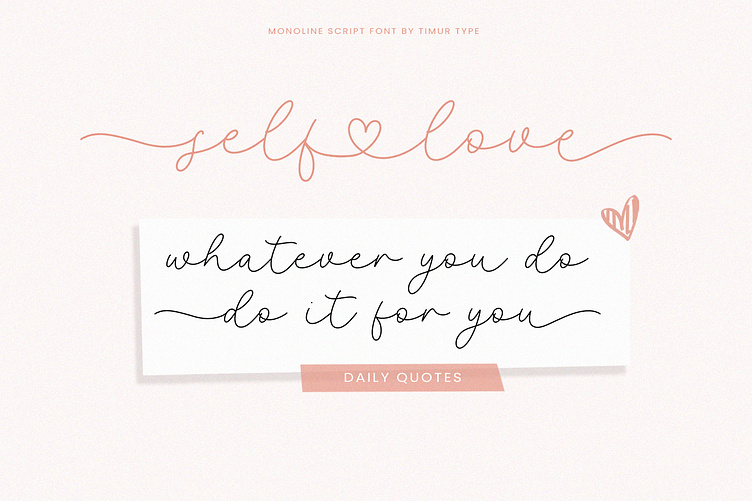 MONOLINE SCRIPT FONT BY TIMUR TYPE
self love
whatever you do
do it for you
DAILY QUOTES